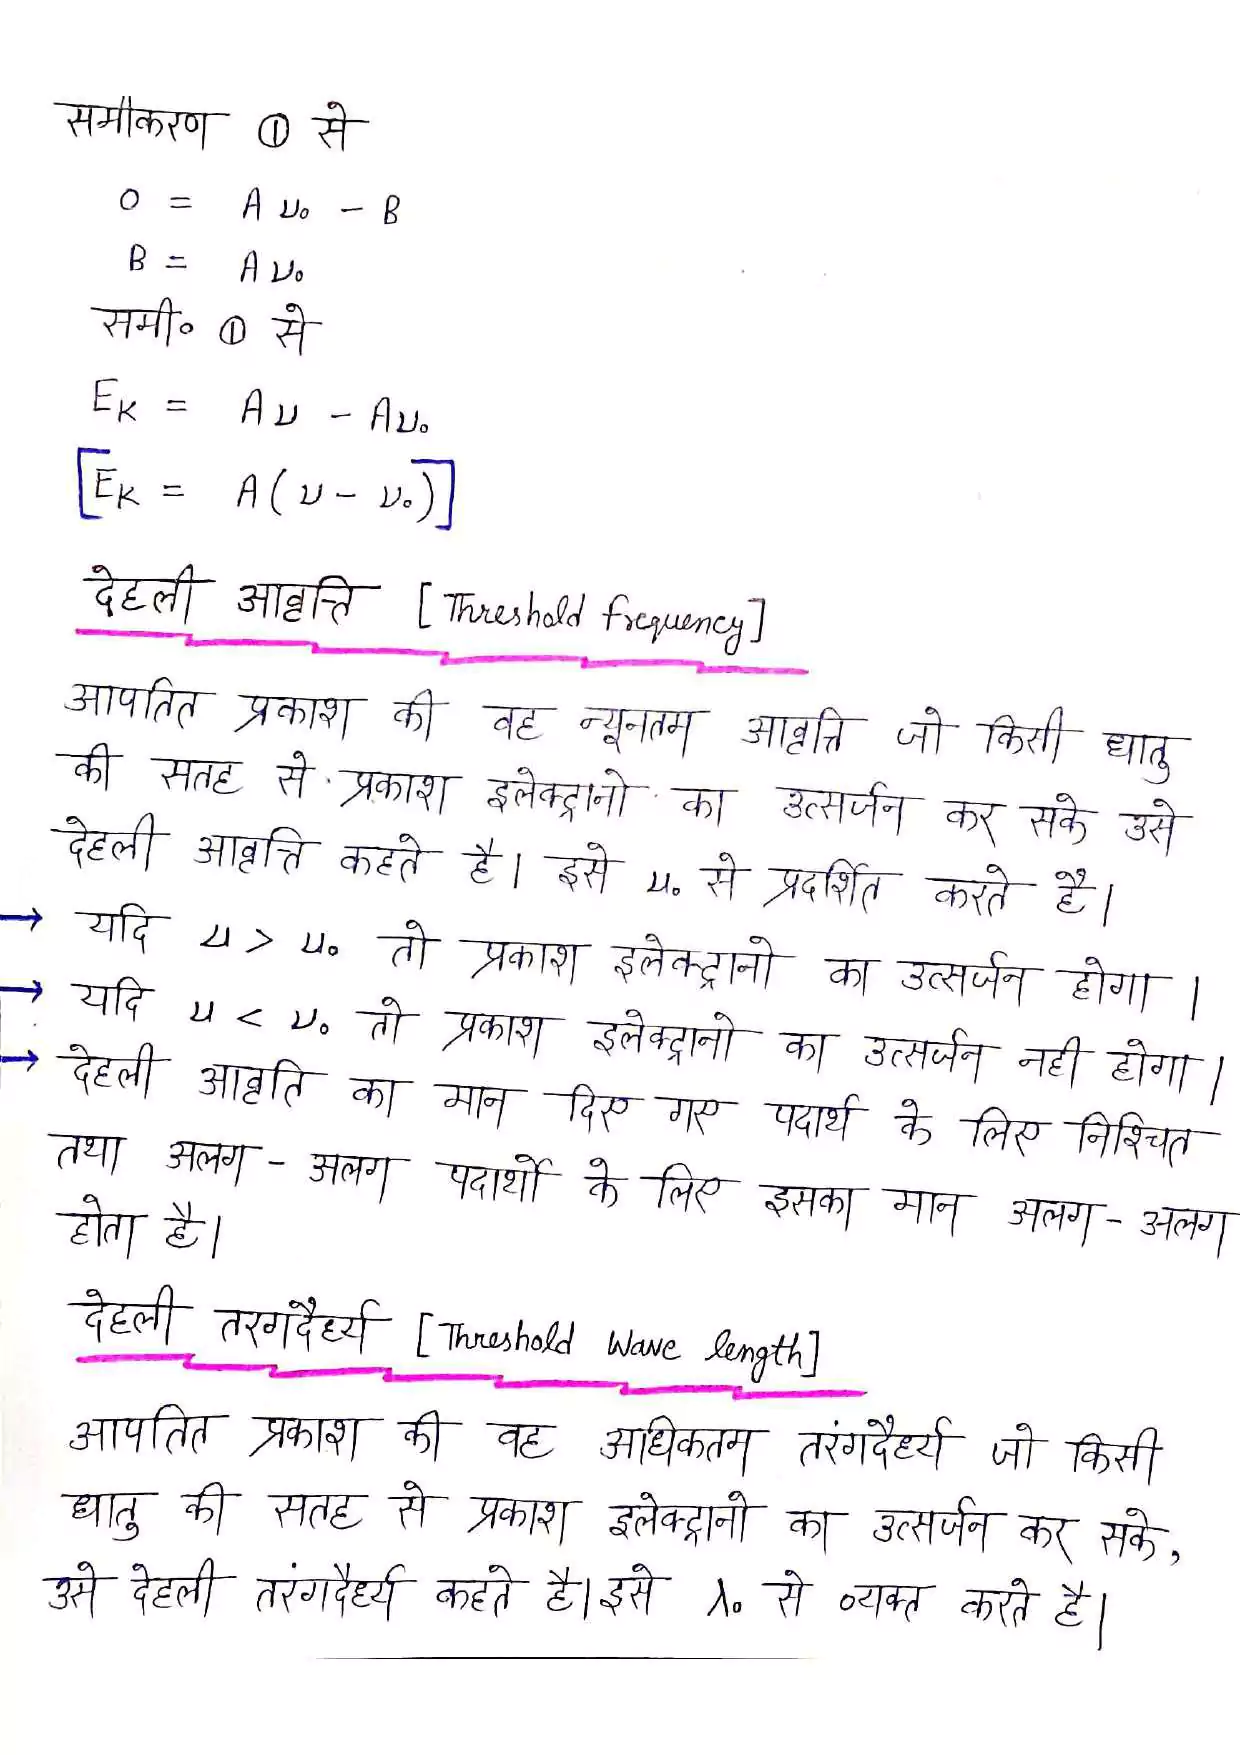 समीकरण ① से
0 = Aν₀ - B
B = Aν₀
समी० ① से
Eₖ = Aν - Aν₀
[Eₖ = A(ν - ν₀)]
देहली आवृत्ति [Threshold frequency]
आपतित प्रकाश की वह न्यूनतम आवृत्ति जो किसी धातु
की सतह से प्रकाश इलेक्ट्रानो का उत्सर्जन कर सके उसे
देहली आवृत्ति कहते है। इसे ν₀ से प्रदर्शित करते है।
→ यदि ν > ν₀ तो प्रकाश इलेक्ट्रानो का उत्सर्जन होगा।
→ यदि ν < ν₀ तो प्रकाश इलेक्ट्रानो का उत्सर्जन नही होगा।
→ देहली आवृति का मान दिए गए पदार्थ के लिए निश्चित
तथा अलग - अलग पदार्थो के लिए इसका मान अलग - अलग
होता है।
देहली तरगदैर्ध्य [Threshold Wave length]
आपतित प्रकाश की वह अधिकतम तरंगदैर्ध्य जो किसी
धातु की सतह से प्रकाश इलेक्ट्रानो का उत्सर्जन कर सके,
उसे देहली तरंगदैर्ध्य कहते है। इसे λ₀ से व्यक्त करते है।